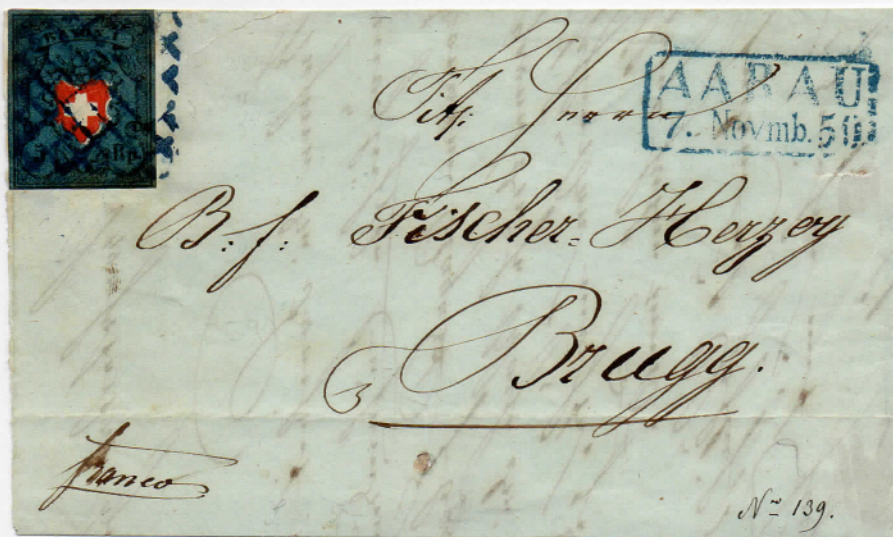 RAYON I
5 Rp.
AARAU
7. Novmb. 50
Tit. Herrn
B: f: Fischer-Herzog
Brugg.
franco
No 139.